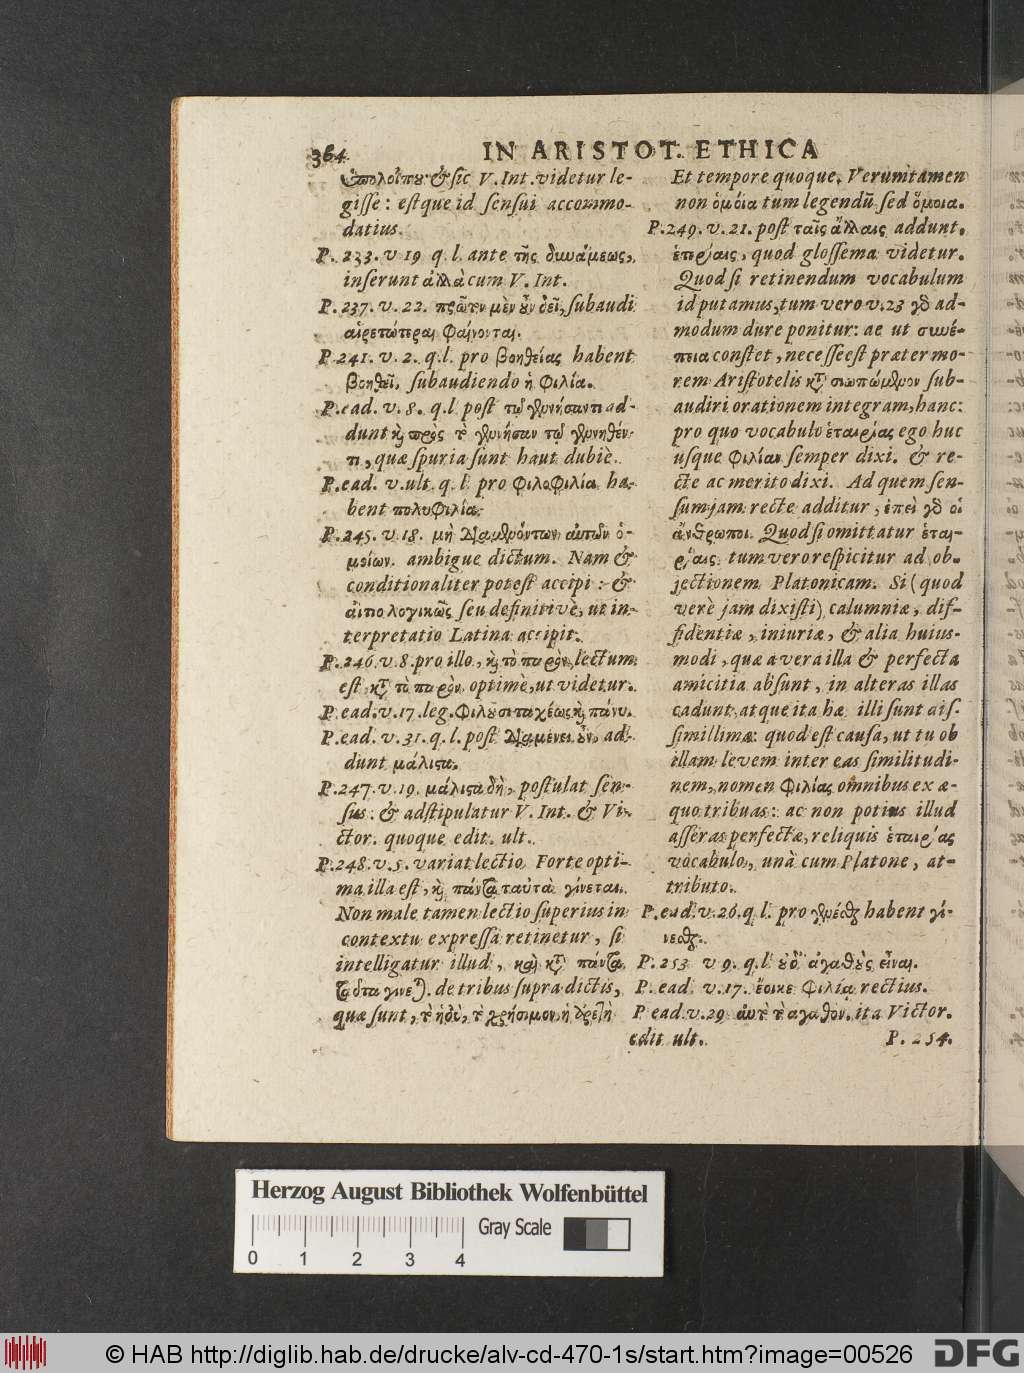 364.
IN ARISTOT. ETHICA
ὑπολοίπου & sic V. Int. videtur le-
gisse: estque id sensui accommo-
datius.
P. 233. v 19 q. l. ante τῆς δυνάμεως,
inserunt ἀλλὰ cum V. Int.
P. 237. v. 22. πρῶτον μὲν οὖν δεῖ, subaudi
αἱρετώτεραι φαίνονται.
P. 241. v. 2. q. l. pro βοηθείας habent
βοηθεῖ, subaudiendo ἡ φιλία.
P. ead. v. 8. q. l post τῷ γεννήσαντι ad-
dunt καὶ πρὸς τὸ γεννῆσαν τῷ γεννηθέν-
τι, quæ spuria sunt haut dubiè.
P. ead. v. ult. q. l. pro φιλοφιλία ha-
bent πολυφιλία.
P. 245. v. 18. μὴ διαμενόντων αὐτῶν ὁ-
μοίων. ambigue dictum. Nam &
conditionaliter potest accipi: &
αἰτιολογικῶς seu definitivè, ut in-
terpretatio Latina accipit.
P. 246. v. 8. pro illo, καὶ τὸ παρὸν, lectum
est κατὰ τὸ παρὸν optimè, ut videtur.
P. ead. v. 17. leg. φιλοῦσι ταχέως καὶ παύον.
P. ead. v. 31. q. l. post διαμένει οὖν, ad-
dunt μάλιστα.
P. 247. v. 19. μάλιστα δὴ, postulat sen-
sus: & adstipulatur V. Int. & Vi-
ctor. quoque edit. ult.
P. 248. v. 5. variat lectio Forte opti-
ma illa est, καὶ πάντα ταὐτὰ γίνεται.
Non male tamen lectio superius in
contextu expressa retinetur, si
intelligatur illud, καὶ κατὰ πάντα
ταῦτα γίνεται. de tribus supra dictis,
quæ sunt, τὸ ἡδὺ, τὸ χρήσιμον, ἡ ἀρετὴ
Et tempore quoque. Veruntamen
non ὁμόια tum legendũ sed ὅμοια.
P. 249. v. 21. post ταῖς ἄλλαις addunt,
ἑταιρίαις, quod glossema videtur.
Quod si retinendum vocabulum
id putamus, tum vero v. 23 γὰρ ad-
modum dure ponitur: ac ut συνέ-
πεια constet, necesse est præter mo-
rem Aristotelis κατὰ σιωπώμενον sub-
audiri orationem integram, hanc:
pro quo vocabulo ἑταιρίας ego huc
usque φιλίαν semper dixi. & re-
cte ac merito dixi. Ad quem sen-
sum jam recte additur, ἐπεὶ γὰρ οἱ
ἄνθρωποι. Quod si omittatur ἑται-
ρίαις tum vero respicitur ad ob-
jectionem Platonicam. Si (quod
verè jam dixisti) calumniæ, dif-
fidentiæ, iniuriæ, & alia huius-
modi, quæ a vera illa & perfecta
amicitia absunt, in alteras illas
cadunt, atque ita hæ illi sunt dis-
simillimæ: quod est causa, ut tu ob
illam levem inter eas similitudi-
nem, nomen φιλίας omnibus ex æ-
quo tribuas: ac non potius illud
asseras perfectæ, reliquis ἑταιρίας
vocabulo, unà cum Platone, at-
tributo.
P. ead. v. 26. q. l. pro γενέσθαι habent γί-
νεσθαι.
P. 253 v 9. q. l οὐδ' ἀγαθοὺς εἶναι.
P. ead. v. 17. ἔοικε φιλία rectius.
P ead. v. 29 αὐτὸ τὸ ἀγαθὸν. ita Victor.
edit. ult.
P. 254.
Herzog August Bibliothek Wolfenbüttel
Gray Scale
0 1 2 3 4
© HAB http://diglib.hab.de/drucke/alv-cd-470-1s/start.htm?image=00526
DFG